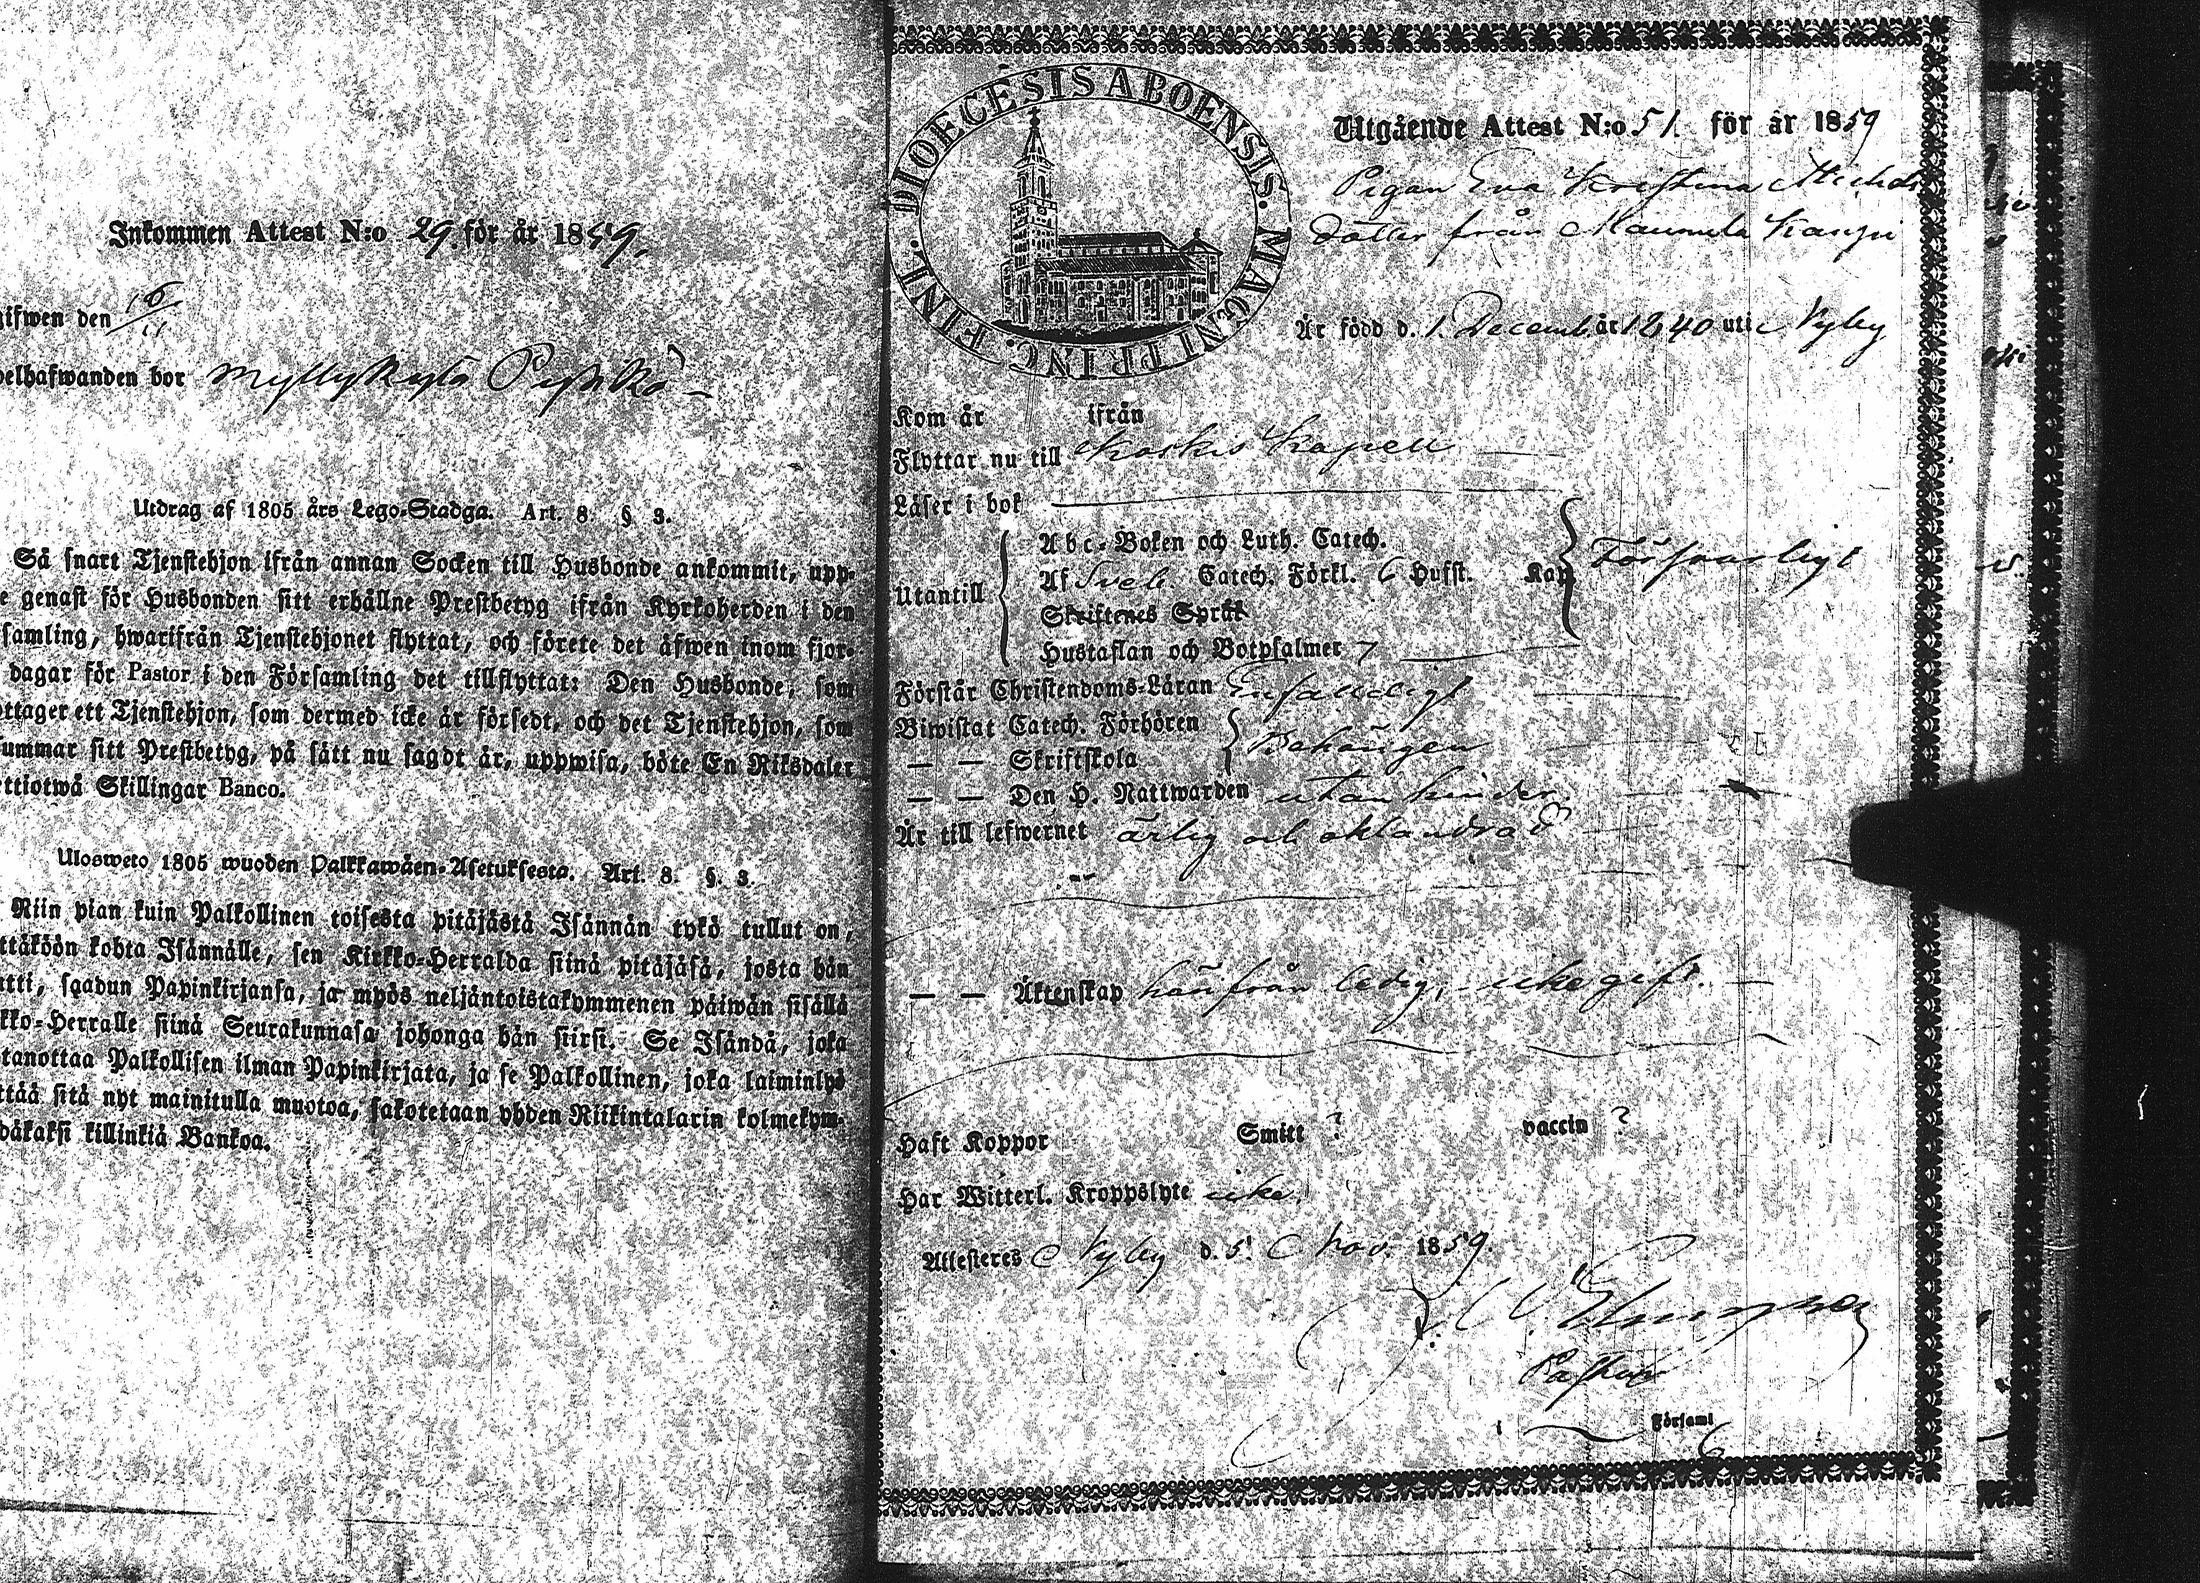 Inkommen Attest N:o 29. för år 1859.
gifwen den 16/11
belhafwanden bor Myllykylä
Utdrag af 1805 års Lego-Stadga. Art. 8. §. 3.
Så snart Tjenstehjon ifrån annan Socken till Husbonde ankommit, upp-
e genast för Husbonden sitt erhållne Prestbetyg ifrån Kyrkoherden i den
samling, hwarifrån Tjenstehjonet flyttat, och förete det äfwen inom fjor-
dagar för Pastor i den Församling det tillflyttat: Den Husbonde, som
ottager ett Tjenstehjon, som dermed icke är försedt, och det Tjenstehjon, som
summar sitt Prestbetyg, på sätt nu sagdt är, uppwisa, böte En Riksdaler
ettiotwå Skillingar Banco.
Ulosweto 1805 wuoden Palkkawäen-Asetuksesta. Art. 8. §. 3.
Niin pian kuin Palkollinen toisesta pitäjästä Isännän tykö tullut on,
ttäköön kohta Isännälle, sen Kirkko-Herralda siinä pitäjäsä, josta hän
utti, saadun Papinkirjansa, ja myös neljäntoistakymmenen päiwän sisällä
kko-Herralle siinä Seurakunnasa johonga hän siirsi. Se Isändä, joka
tanottaa Palkollisen ilman Papinkirjata, ja se Palkollinen, joka laiminlyö
ttää sitä nyt mainitulla muotoa, sakotetaan yhden Riikintalarin kolmekym-
däkaksi killinkiä Bankoa.
DIOECESIS ABOENSIS. MAGNI PRINC. FINL.
Utgående Attest N:o 51. för år 1859
Pigan Eva Kristina Michels
dotter från Maunula
Är född d. 1 Decemb. år 1840 uti Nyby
Kom år ifrån
Flyttar nu till Koskis Kapell
Läser i bok
Utantill
Abc-Boken och Luth. Catech.
Af Sveb. Catech. Förkl. 6 Hufst. Kan Försvarligt
Skriftenes Språk
Hustaflan och Botpsalmer 7
Förstår Christendoms-Läran Enfaldigt
Biwistat Catech. Förhören
— — Skriftskola Behörigen
— — Den H. Nattwarden utan hinder
Är till lefwernet ärlig och oklandrad
— — Äktenskap härifrån ledig, icke gift.
Haft Koppor Smitt ? vaccin ?
Har Witterl. Kroppslyte icke.
Attesteres Nyby d. 5 Nov. 1859.
Pastor
i Församl